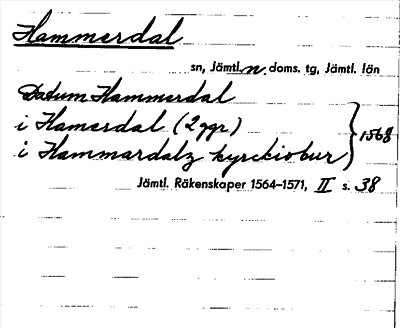 Hammerdal
sn, Jämtl. n. doms. tg, Jämtl. län
Datum Hammerdal
i Hamerdal (2 ggr)
i Hammardalz kyrckiobur } 1568
Jämtl. Räkenskaper 1564–1571, II s. 38